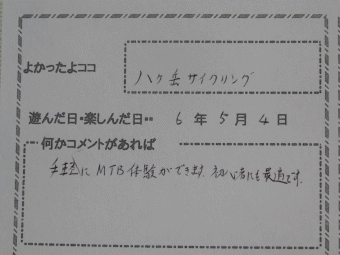 よかったよココ 八ヶ岳サイクリング
遊んだ日・楽しんだ日・・ 6年5月4日
何かコメントがあれば
手軽にMTB体験ができます。初心者にも最適です。